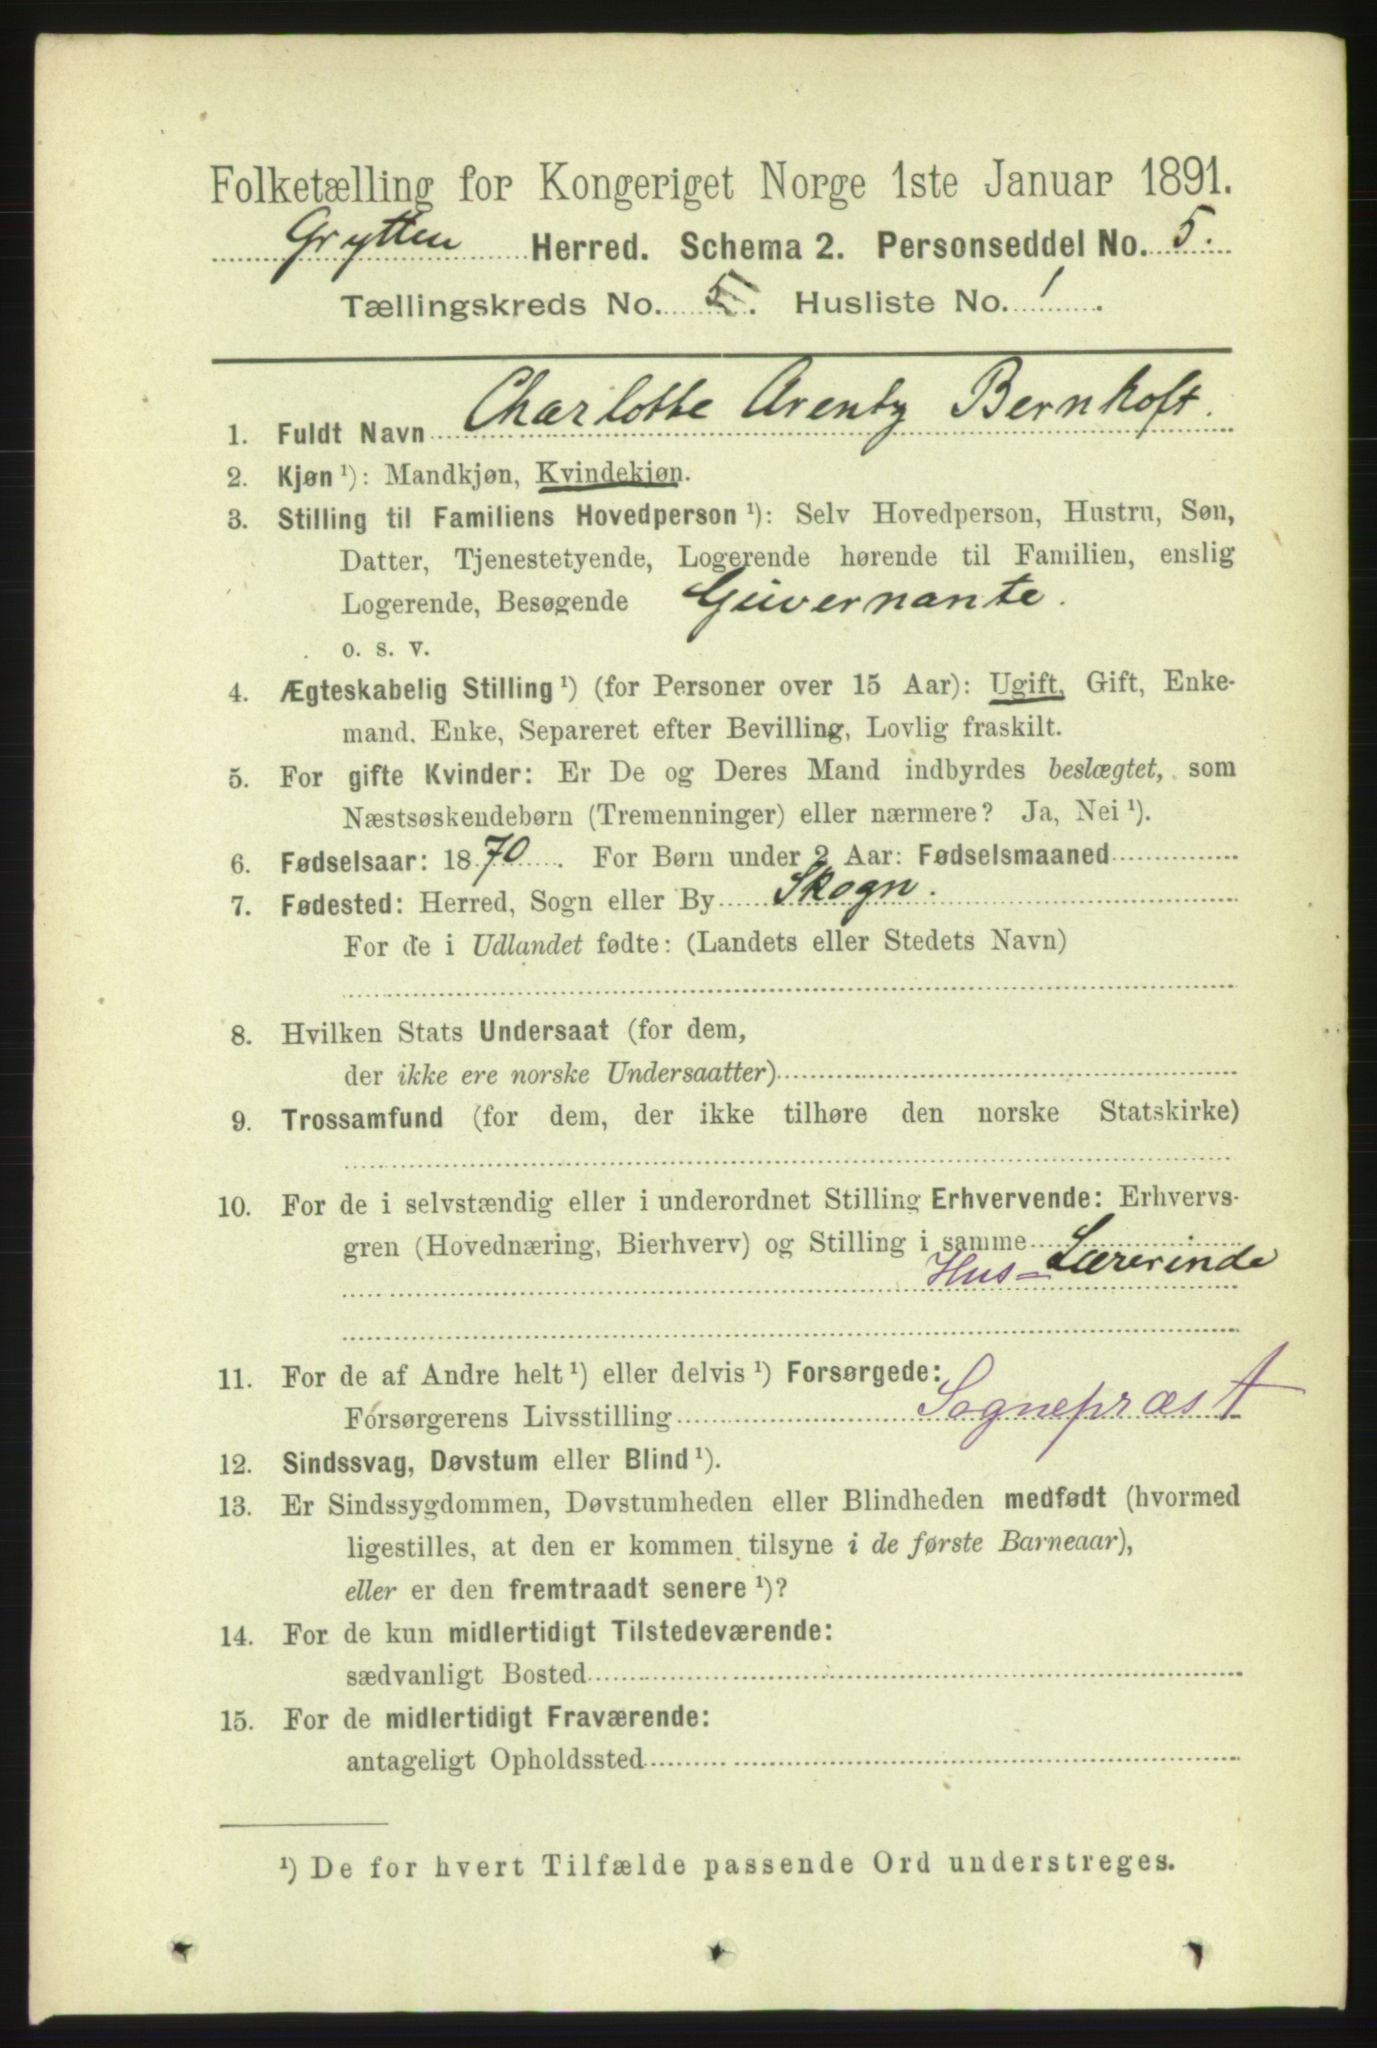 Folketælling for Kongeriget Norge 1ste Januar 1891.
Grytten Herred. Schema 2. Personseddel No. 5.
Tællingskreds No. 5. Husliste No. 1.
1. Fuldt Navn Charlotte Arentz Bernhoft.
2. Kjøn ¹): Mandkjøn, Kvindekjøn.
3. Stilling til Familiens Hovedperson ¹): Selv Hovedperson, Hustru, Søn,
Datter, Tjenestetyende, Logerende hørende til Familien, enslig
Logerende, Besøgende Guvernante.
o. s. v.
4. Ægteskabelig Stilling ¹) (for Personer over 15 Aar): Ugift, Gift, Enke-
mand, Enke, Separeret efter Bevilling, Lovlig fraskilt.
5. For gifte Kvinder: Er De og Deres Mand indbyrdes beslægtet, som
Næstsøskendebørn (Tremenninger) eller nærmere? Ja, Nei ¹).
6. Fødselsaar: 1870. For Børn under 2 Aar: Fødselsmaaned
7. Fødested: Herred, Sogn eller By Skogn.
For de i Udlandet fødte: (Landets eller Stedets Navn)
8. Hvilken Stats Undersaat (for dem,
der ikke ere norske Undersaatter)
9. Trossamfund (for dem, der ikke tilhøre den norske Statskirke)
10. For de i selvstændig eller i underordnet Stilling Erhvervende: Erhvervs-
gren (Hovednæring, Bierhverv) og Stilling i samme Lærerinde
Hus-
11. For de af Andre helt ¹) eller delvis ¹) Forsørgede:
Forsørgerens Livsstilling Sognepræst
12. Sindssvag, Døvstum eller Blind ¹).
13. Er Sindssygdommen, Døvstumheden eller Blindheden medfødt (hvormed
ligestilles, at den er kommen tilsyne i de første Barneaar),
eller er den fremtraadt senere ¹)?
14. For de kun midlertidigt Tilstedeværende:
sædvanligt Bosted
15. For de midlertidigt Fraværende:
antageligt Opholdssted
¹) De for hvert Tilfælde passende Ord understreges.